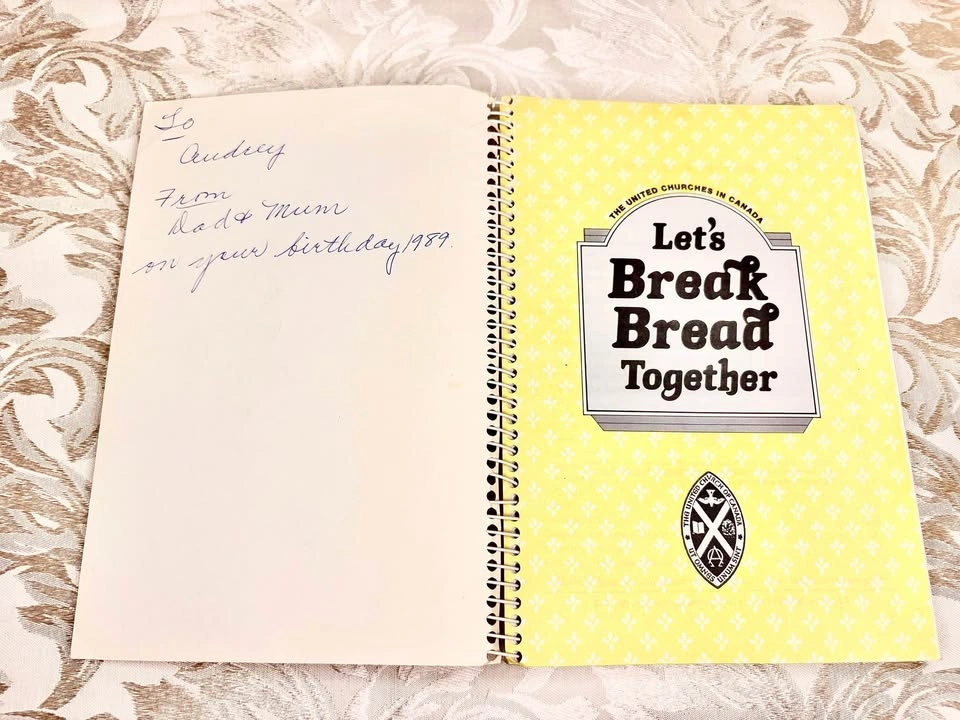 To
Audrey
From
Dad & Mum
on your birthday 1989.
THE UNITED CHURCHES IN CANADA
Let's
Break
Bread
Together
THE UNITED CHURCH OF CANADA
UT OMNES UNUM SINT
ΑΩ